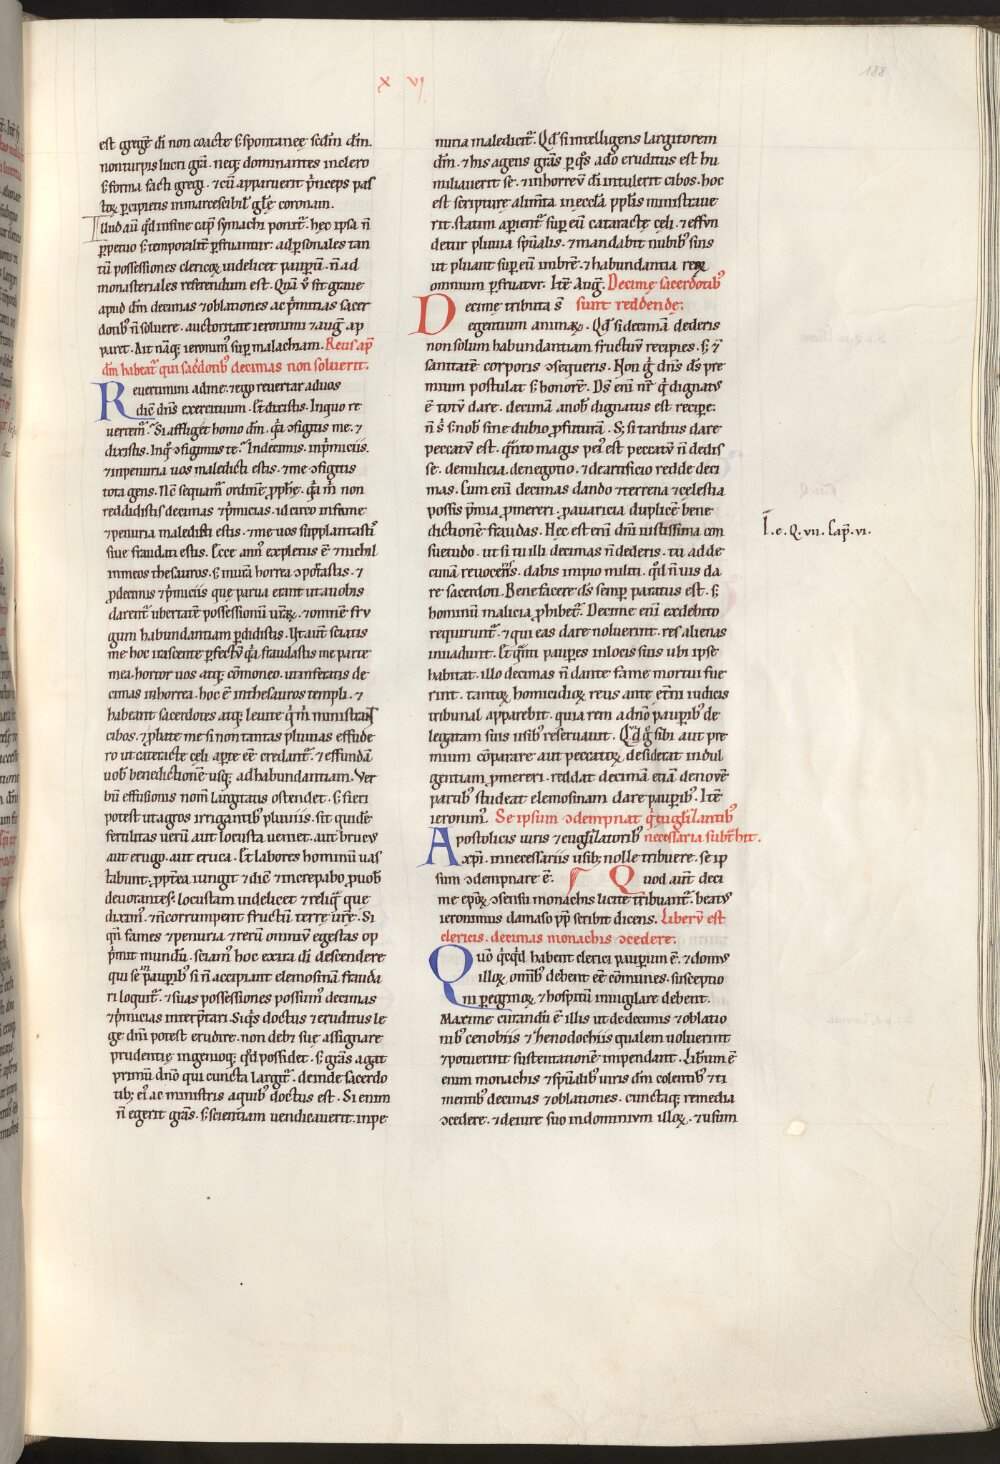 x vj
188
est gregẽ di non coacte ẜ spontaneę scdm dm.
non turpis lucri gr̃a. neq; dominantes in clero
ẜ forma facti gregi. ⁊ cũ apparuerit p̃nceps pas
toꝝ ꝑcipietis inmarcescibil̃ gl̃ę coronam.
Illud aũ qd̃ in fine cap̃ symachi ponit̃. hęc ipsa ñ
ꝑpetuo ẜ temporalit̃ ꝑfruantur: ad ꝑsonales tan
tũ possessiones clericoꝝ uidelicet pauꝑũ. ñ ad
monasteriales referendum est. Quã ṽ sit graue
apud dm̃ decimas ⁊ oblationes ac p̃mitias sacer
dotib᷒ ñ soluere. auctoritate ieronimi ⁊ aug̃ ap
paret. Ait nãq; ieronim᷒ sup̃ malachiam. Reus ap᷒
dm̃ habeat᷒ qui sac̃dotib᷒ decimas non soluerit.
Reuertimini ad me. ⁊ ego reuertar ad uos
dic̃ dn̄s exercituum. Et dixistis. In quo re
uertem᷒. Si affliget homo dm̃. q̃a ꝯfigitis me. ⁊
dixistis. In q̊ ꝯfigimus te. In decimis. in p̃miciis.
⁊ in penuria uos maledicti estis. ⁊ me ꝯfigitis
tota gens. Nc̃ sequam᷒ ordinẽ ꝓph̃ę. q̃a m̃ non
reddidistis decimas ⁊ p̃micias. idcirco in fame
⁊ penuria maledicti estis. ⁊ me uos supplantastis
siue fraudati estis. Ecce ann᷒ expletus ẽ ⁊ nichil
in meos thesauros. ẜ in ura horrea ꝯportastis. ⁊
ꝓ decimis ⁊ p̃miciis que parua erant ut a uobis
darent᷒ ubertatẽ possessionũ urãꝝ. ⁊ omnẽ fru
gum habundantiam ꝑdidistis. Ut aut̃ sciatis
me hoc irascente ꝑfectũ q̃a fraudastis me parte
mea. hortor uos atq; cõmoneo. ut inferatis de
cimas in horrea. hoc ẽ in thesauros templi. ⁊
habeant sacerdotes atq; leuite q̃ m̃ ministrant
cibos. ⁊ ꝓbate me si non tantas pluuias effude
ro ut cataracte cęli aꝑte eẽ credant᷒. ⁊ effundã
uob᷒ benedictionẽ usq; ad habundantiam. Ver
bũ effusionis nom̃ largitatis ostendet. ẜ fieri
potest ut agros irrigantib᷒ pluuiis. sit quidẽ
fertilitas uerũ aut locusta ueniet. aut bruc᷒
aut erugo. aut eruca. Et labores hominũ uas
tabunt. ꝓpt̃ea iungit ⁊ dic̃ ⁊ increpabo ꝓ uob᷒
deuorantes. locustam uidelicet ⁊ reliq̃ que
dixim᷒. ⁊ ñ corrumpent fructũ terrę ur̃ę. Si
qñ fames ⁊ penuria ⁊ rerũ omniũ egestas op
p̃mit mundũ. sciam᷒ hoc ex ira di descendere
qui se ĩ pauꝑib᷒ si ñ accipiant elemosinã frauda
ri loquit᷒. ⁊ suas possessiones possum᷒ decimas
⁊ p̃micias interp̃tari. Siq̃s doctus ⁊ eruditus le
ge dm̃ potest erudire. non deb᷒ suę assignare
prudentię ingenioq; qd̃ possidet. ẜ gr̃as agat
primũ dño qui cuncta largit᷒. deinde sacerdo
tib; ei᷒ ac ministris a quib᷒ doctus est. Si enim
ñ egerit gr̃as. ẜ scientiam uendicauerit. in pe
nuria maledicit᷒. Qd̃ si intelligens largitorem
dm̃. ⁊ his agens gr̃as ꝑ q̊s a do eruditus est hu
miliauerit se. ⁊ in horreũ di intulerit cibos. hoc
est scripturę alim̃ta in eccl̃a ppl̃is ministraue
rit. statim aꝑient᷒ suꝑ eũ cataractę cęli. ⁊ effun
detur pluuia sp̃ualis. ⁊ mandabit nubib᷒ suis
ut pluant suꝑ eũ imbrẽ. ⁊ habundantia reꝝ
omnium ꝑfruat᷒. Itẽ Aug̃. Decimę sacerdotib᷒
Decime tributa s̃ sunt reddendę.
egentium animaꝝ. Qd̃ si decimã dederis
non solum habundantiam fructuũ recipies. ẜ ⁊
sanitatẽ corporis ꝯsequeris. Non g̊ dn̄s ds̄ pre
mium postulat ẜ honorẽ. Ds̄ eni nr̃ q̃ dignat᷒
ẽ totũ dare. decimã a nob᷒ dignatus est reciꝑe.
ñ s̃ ẜ nob᷒ sine dubio ꝓfuturã. S; si tardius dare
peccatũ est. q̃nto magis pei᷒ est peccatũ ñ dedis
se. de milicia. de negotio. ⁊ de artificio redde deci
mas. Cum eni decimas dando ⁊ terrena ⁊ cęlestia
possis p̃mia ꝓmereri. ꝑ auaricia duplicẽ bene
dictionẽ fraudas. Hęc est eni dm̃ iustissima con
suetudo. ut si tu illi decimas ñ dederis. tu ad de
cimã reuoceris. dabis impio militi. qd̃ ñ uis da
re sacerdoti. Benefacere ds̄ semꝑ paratus est. ẜ
hominũ malicia ꝓhibet᷒. Decime eni ex debito
requirunt᷒. ⁊ qui eas dare noluerint. res alienas
inuadunt. Et q̃nti pauꝑes in locis suis ubi ipse
habitat. illo decimas ñ dante fame mortui fue
rint. tantoꝝ homicidioꝝ reus ante et̃ni iudicis
tribunal apparebit. quia rem a dño pauꝑib᷒ de
legatam suis usib᷒ reseruauit. Qd̃ q̊ sibi aut pre
mium cõparare aut peccatoꝝ desiderat indul
gentiam ꝓmereri. reddat decimã etiã de nouẽ
partib᷒ studeat elemosinam dare pauꝑib᷒. Itẽ
ieronim᷒. Se ipsum ꝯdempnat q̃ eugl̃izantib᷒
Apostolicis uiris ⁊ eugl̃izatorib᷒ necessaria subt̃hit.
xp̃i. in necessariis usib; nolle tribuere. se ip
sum ꝯdempnare ẽ. Quod aut̃ deci
me ep̃oꝝ ꝯsensu monachis licite tribuant᷒. beat᷒
ieronimus damaso pp̃ scribit dicens. Liberũ est
clericis. decimas monachis ꝯcedere.
Quõ q̃cq̃d habent clerici pauꝑum ẽ. ⁊ domus
illoꝝ omib᷒ debent eẽ cõmunes. susceptio
ni ꝑegrinoꝝ ⁊ hospitũ inuigilare debent.
Maxime curandũ ẽ illis ut de decimis ⁊ oblatio
nib᷒ cenobiis ⁊ xenodochiis qualem uoluerint
⁊ potuerint sustentationẽ impendant. Libum ẽ
enim monachis ⁊ sp̃ualib᷒ uiris dm̃ colentib᷒ ⁊ ti
mentib᷒ decimas ⁊ oblationes. cunctaq; remedia
ꝯcedere. ⁊ de iure suo in dominium illoꝝ. ⁊ usum
I. e. Q. vii. Cap̃. vi.